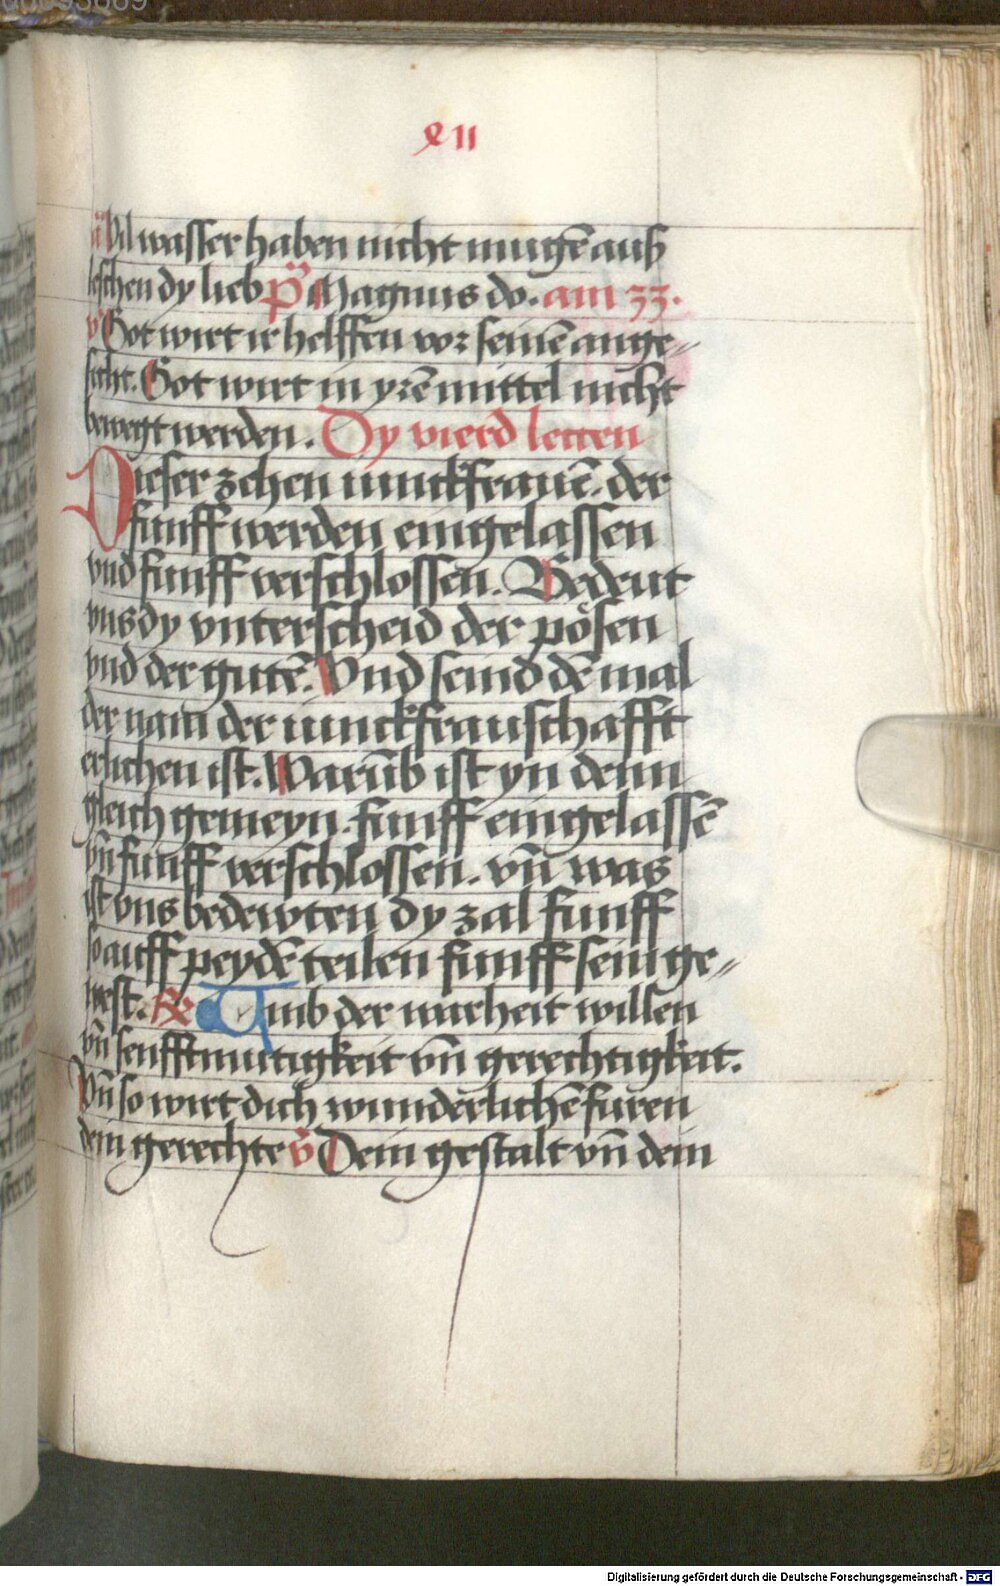 xii
a Vil wasser haben nicht mugē auß
leschen dy lieb pͦ Magnus do. am 33.
v Got wirt ir helffen vor seinē ange⸗
sicht. Got wirt in yrē mittel nicht
bewegt werden. Dy vierd letcen
Dieser zehen iunckfrauē. der
funff werden eingelassen
vnd funff verschlossen. Bedeut
vns dy vnterscheid der pösen
vnd der gutē. Vnd seind dē mal
der nam der iunckfrauschafft
erlichen ist. Warūb ist yn denn
gleich gemeyn. funff eingelassē
vn̄ funff verschlossen. vn̄ was
ist vns bedewten dy zal funff
so auff peydē teilen funff sein ge⸗
west. ℟ Umb der warheit willen
vn̄ senfftmutigkeit vn̄ gerechtigkeit.
Vn̄ so wirt dich wunderlichē furen
dein gerechte v̄ Dein gestalt vn̄ dein
Digitalisierung gefördert durch die Deutsche Forschungsgemeinschaft - DFG